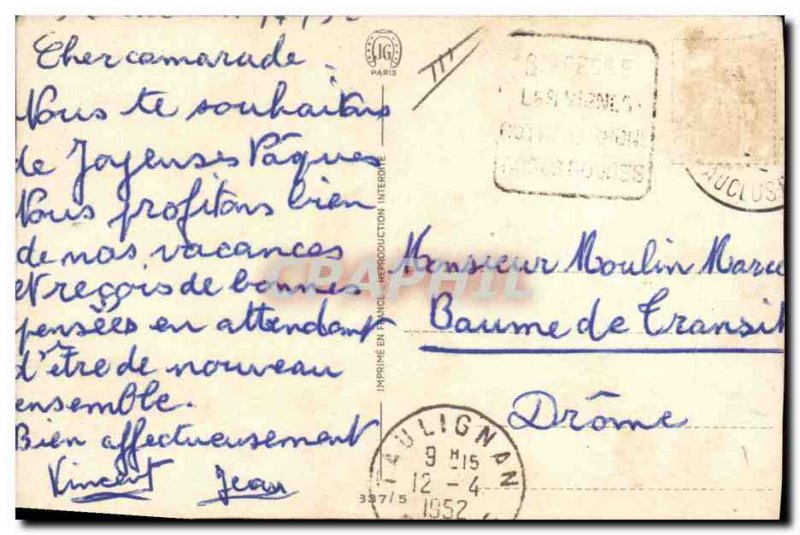 Cher camarade.
Nous te souhaitons
de Joyeuses Pâques
Nous profitons bien
de nos vacances
et reçois de bonnes
pensées en attendant
d'être de nouveau
ensemble.
Bien affectueusement
Vincent Jean
JG
PARIS
IMPRIMÉ EN FRANCE - REPRODUCTION INTERDITE
337/5
Monsieur Moulin Marce
Baume de Transit
Drôme
TAULIGNAN
9 H 15
12 - 4
1952
CPAPHIL